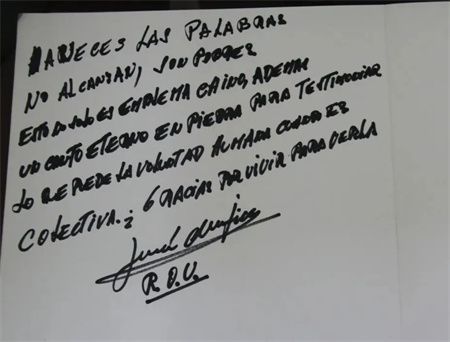 A VECES LAS PALABRAS
NO ALCANZAN, SON POBRES
ESTO NO SOLO ES EMBLEMA CHINO, ADEMAS
UN CANTO ETERNO EN PIEDRA PARA TESTIMONIAR
LO QE PUEDE LA VOLUNTAD HUMANA CUANDO ES
COLECTIVA.; GRACIAS POR VIVIR PARA VERLA
José Mujica
R.O.U.